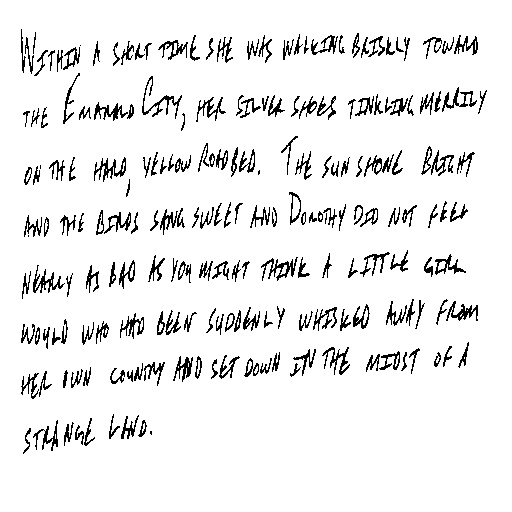 Within a short time she was walking briskly toward
the Emarald City, her silver shoes tinkling merrily
on the hard, yellow roadbed. The sun shone bright
and the birds sang sweet and Dorothy did not feel
nearly as bad as you might think a little girl
would who had been suddenly whisked away from
her own country and set down in the midst of a
strange land.